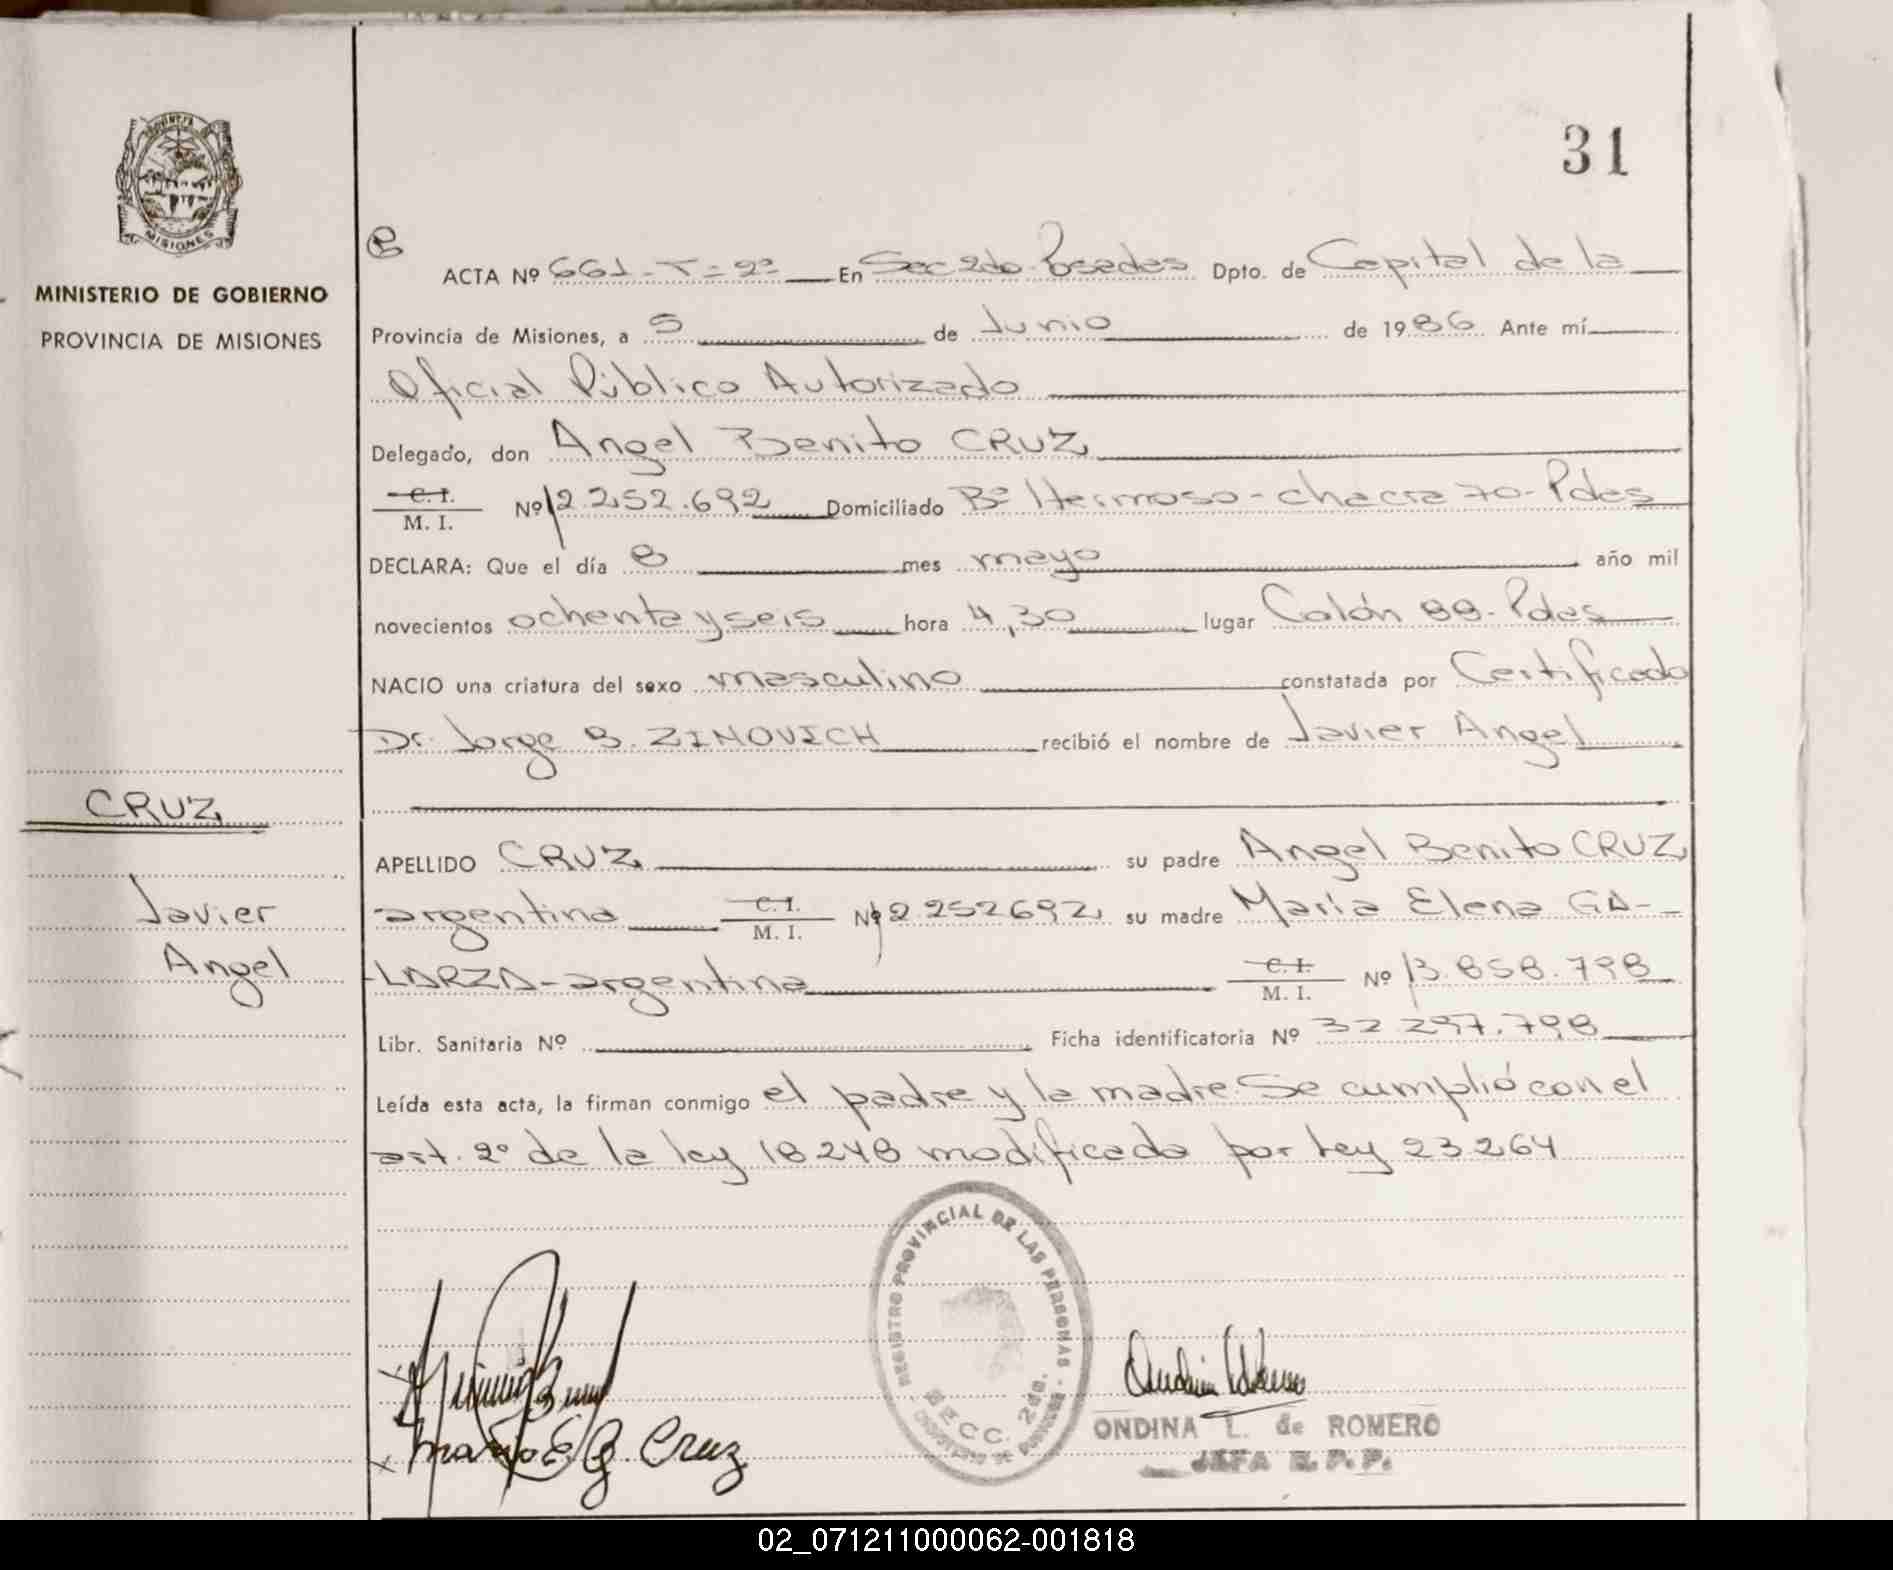 31
MINISTERIO DE GOBIERNO
PROVINCIA DE MISIONES
MISIONES
ACTA Nº 661-T=2º En Sec 2da. Posadas Dpto. de Capital de la
Provincia de Misiones, a 5 de Junio de 1986 Ante mí
Oficial Público Autorizado
Delegado, don Angel Benito CRUZ
C.I. M. I. Nº 12.252.692 Domiciliado Bº Hermoso - chacra 70 - Pdas
DECLARA: Que el día 8 mes mayo año mil
novecientos ochenta y seis hora 4,30 lugar Colón 88 - Pdas
NACIO una criatura del sexo masculino constatada por Certificado
Dr. Jorge B. ZINOVICH recibió el nombre de Javier Angel
CRUZ
Javier
Angel
APELLIDO CRUZ su padre Angel Benito CRUZ
argentina C.I. M. I. Nº 12.252692 su madre María Elena GA-
LARZA - argentina C.I. M. I. Nº 13.858.798
Libr. Sanitaria Nº Ficha identificatoria Nº 32.297.798
Leída esta acta, la firman conmigo el padre y la madre. Se cumplió con el
art. 2º de la ley 18248 modificada por Ley 23.264
REGISTRO PROVINCIAL DE LAS PERSONAS
SECC. 2da.
Maria E G. Cruz
ONDINA L. de ROMERO
JEFA R. P. P.
02_071211000062-001818